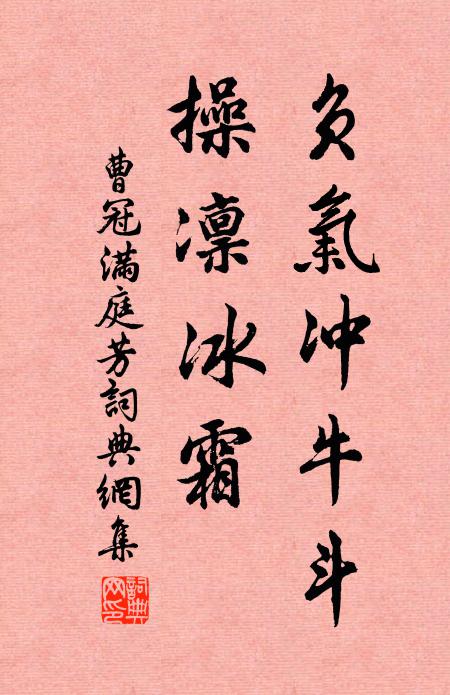 负氣冲牛斗
操凛冰霜
曹冠满庭芳詞典網集
詞典网印